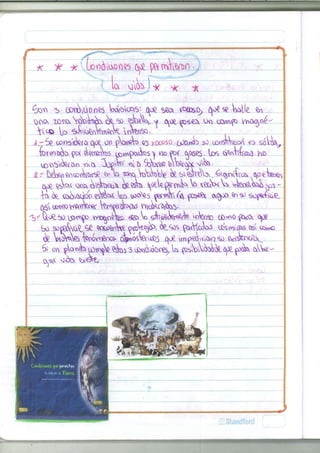 Condiciones que permitieron
la vida
Son 3 condiciones básicas: que sea rocoso, que se halle en
una zona habitada de su estrella y que posea un campo magné-
tico lo suficientemente intenso.
1.- Se considera que un planeta es rocoso cuando su constitución es sólida,
formado por elementos compactos y no por gases. Los científicos no
consideran ni a Jupiter ni a Saturno albergar vida.
2.- Deben encontrarse en la zona habitable de su estrella. Significa que tienen
que estar una distancia de esta que le permita la recibir la intensidad jus-
ta de radiación estelar los cuales permitiría poseer agua en su superficie
así como mantener temperaturas moderadas.
3.- Que su campo magnético sea lo suficientemente intenso como para que
su superficie se encuentre protegida de sus partículas cósmicas así como
de fenómenos atmosféricos que impedirían su existencia.
Si un planeta cumple estas 3 condiciones, la posibilidad de que pueda alber-
gar vida existe.
Condiciones que
Tierra
Standford